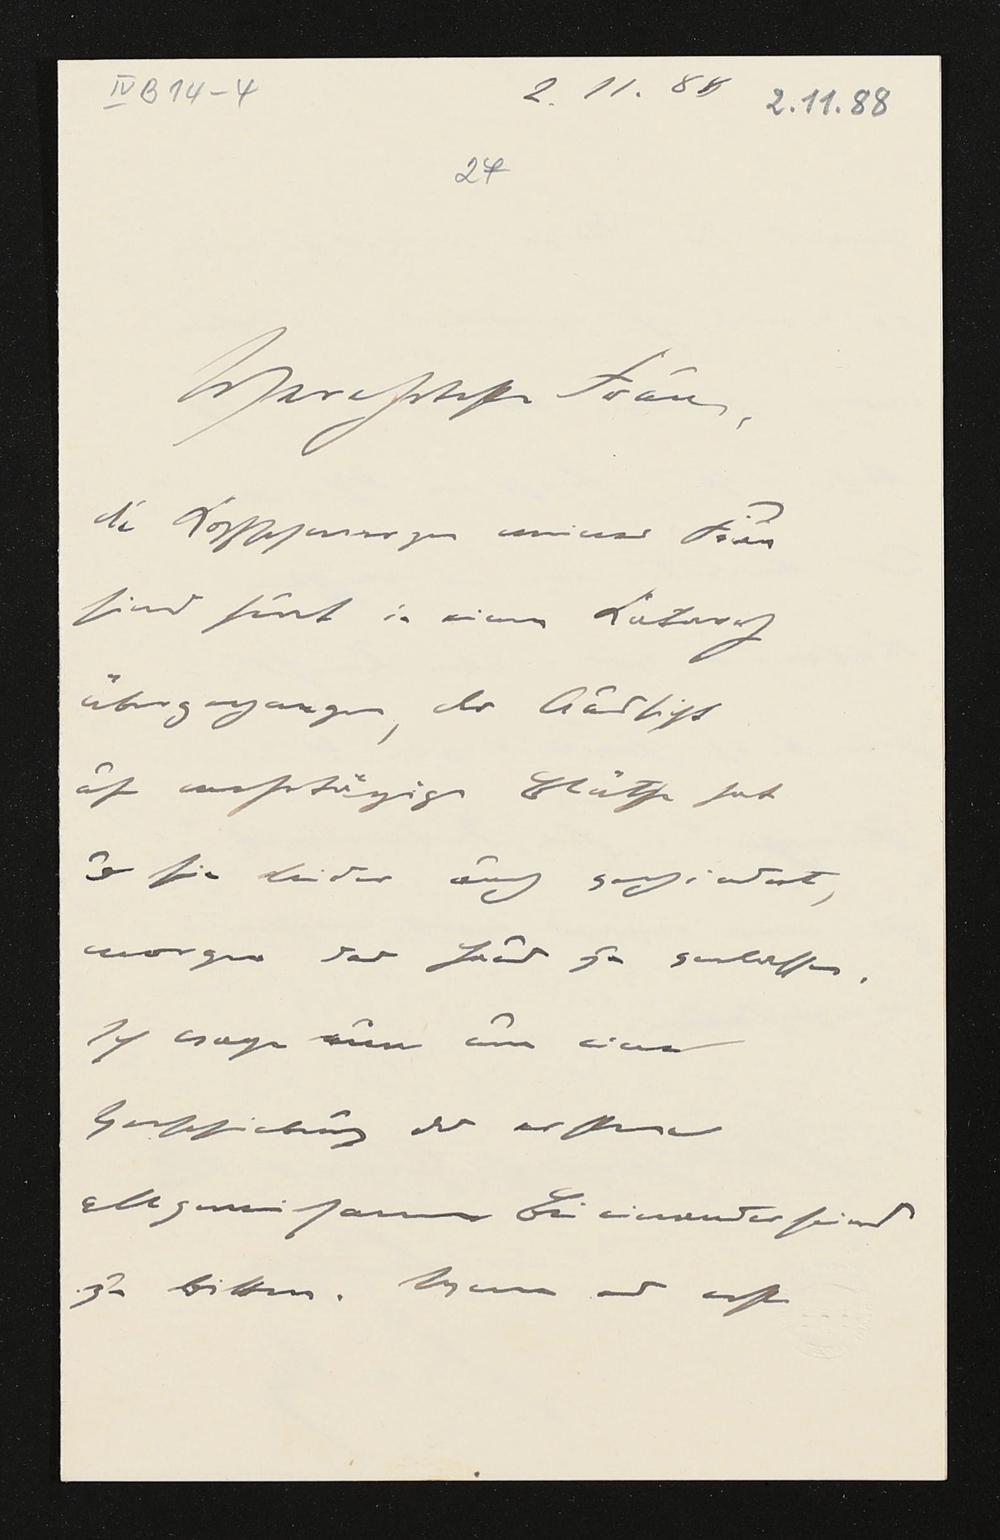 IV B 14-4
2. 11. 88
2.11.88
24
Verehrteste Frau,
die Kopfschmerzen meiner Frau
sind heut in einen Katarrh
übergegangen, der Aussicht
auf mehrtägige Blüthe hat
u sie leider auch verhindert,
morgen das Haus zu verlassen.
Ich wage nun um eine
Verschiebung des ersten
allgemeinsamen Beieinanderseins
zu bitten. Wenn es erst